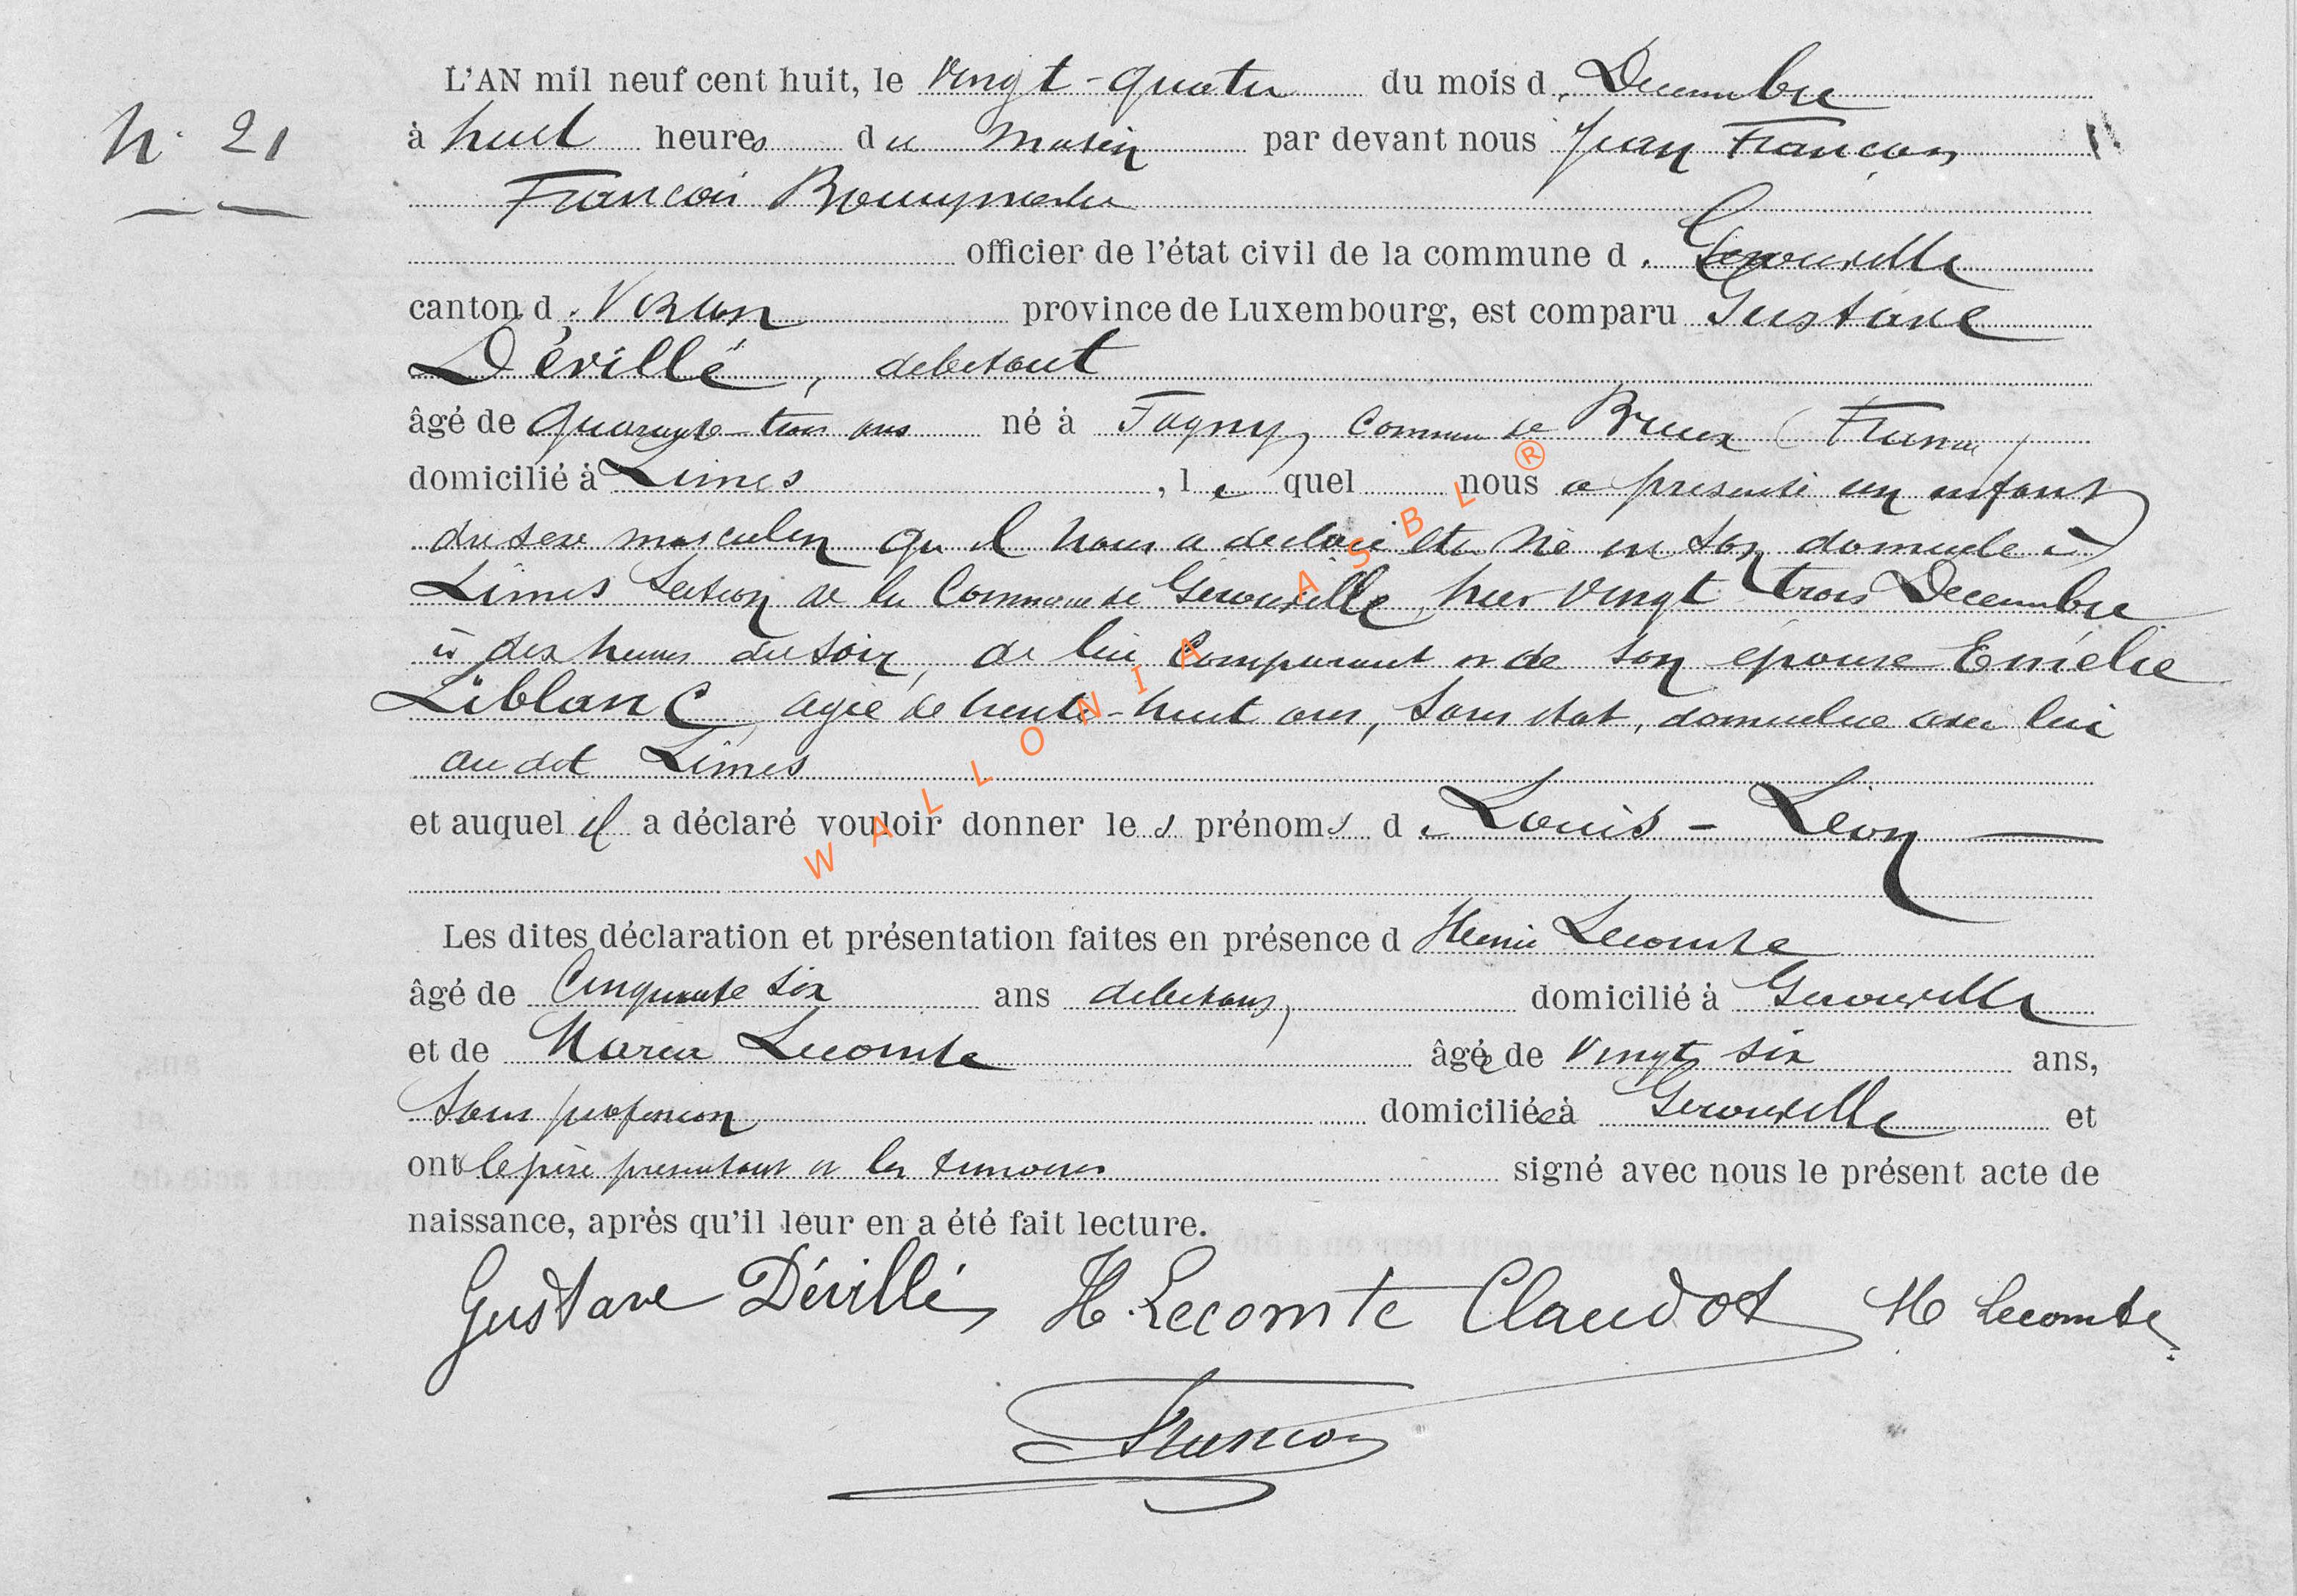 L'AN mil neuf cent huit, le vingt-quatre du mois de Decembre
N° 21
à huit heures du matin par devant nous Jean François
François Bourgmestre
officier de l'état civil de la commune de Gerouville
canton de Virton province de Luxembourg, est comparu Gustave
Dévillé, debitant
âgé de quarante-trois ans né à Fagny, Commune de Breux (France)
domicilié à Limes, le quel nous a presenté un enfant
du sexe masculin qu'il nous a declaré être né en son domicile à
Limes Section de la Commune de Gerouville, hier vingt trois Decembre
à dix heures du soir, de lui Comparant et de son épouse Emélie
Liblanc, agée de trente-huit ans, sans état, domiciliée avec lui
au dit Limes
et auquel il a déclaré vouloir donner les prénoms de Louis - Léon
Les dites déclaration et présentation faites en présence d Henri Lecomte
âgé de Cinquante six ans debitant, domicilié à Gerouville
et de Maria Lecomte âgée de vingt six ans,
Sans profession domiciliée à Gerouville et
ont le père presentant et les temoins signé avec nous le présent acte de
naissance, après qu'il leur en a été fait lecture.
Gustave Dévillé H. Lecomte Claudot M Lecomte
François
WALLONIA ASBL ®